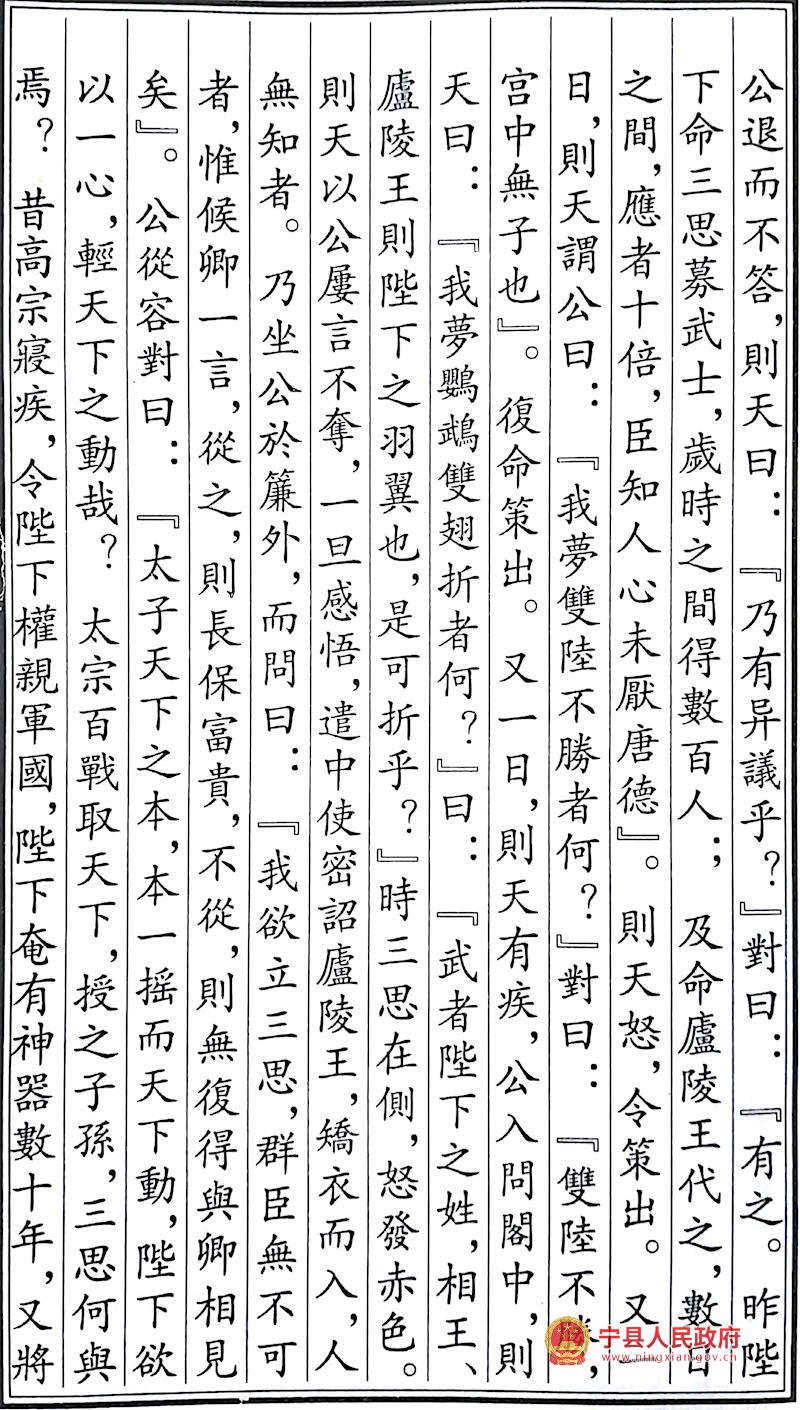 公退而不答，則天曰：『乃有异議乎？』對曰：『有之。昨陛
下命三思募武士，歲時之間得數百人；及命廬陵王代之，數日
之間，應者十倍，臣知人心未厭唐德』。則天怒，令策出。又一
日，則天謂公曰：『我夢雙陸不勝者何？』對曰：『雙陸不勝，
宫中無子也』。復命策出。又一日，則天有疾，公入問閣中，則
天曰：『我夢鸚鵡雙翅折者何？』曰：『武者陛下之姓，相王、
廬陵王則陛下之羽翼也，是可折乎？』時三思在側，怒發赤色。
則天以公屢言不奪，一旦感悟，遣中使密詔廬陵王，矯衣而入，人
無知者。乃坐公於簾外，而問曰：『我欲立三思，群臣無不可
者，惟候卿一言，從之，則長保富貴，不從，則無復得與卿相見
矣』。公從容對曰：『太子天下之本，本一摇而天下動，陛下欲
以一心，輕天下之動哉？太宗百戰取天下，授之子孫，三思何與
焉？昔高宗寢疾，令陛下權親軍國，陛下奄有神器數十年，又將
宁县人民政府
www.ningxian.gov.cn